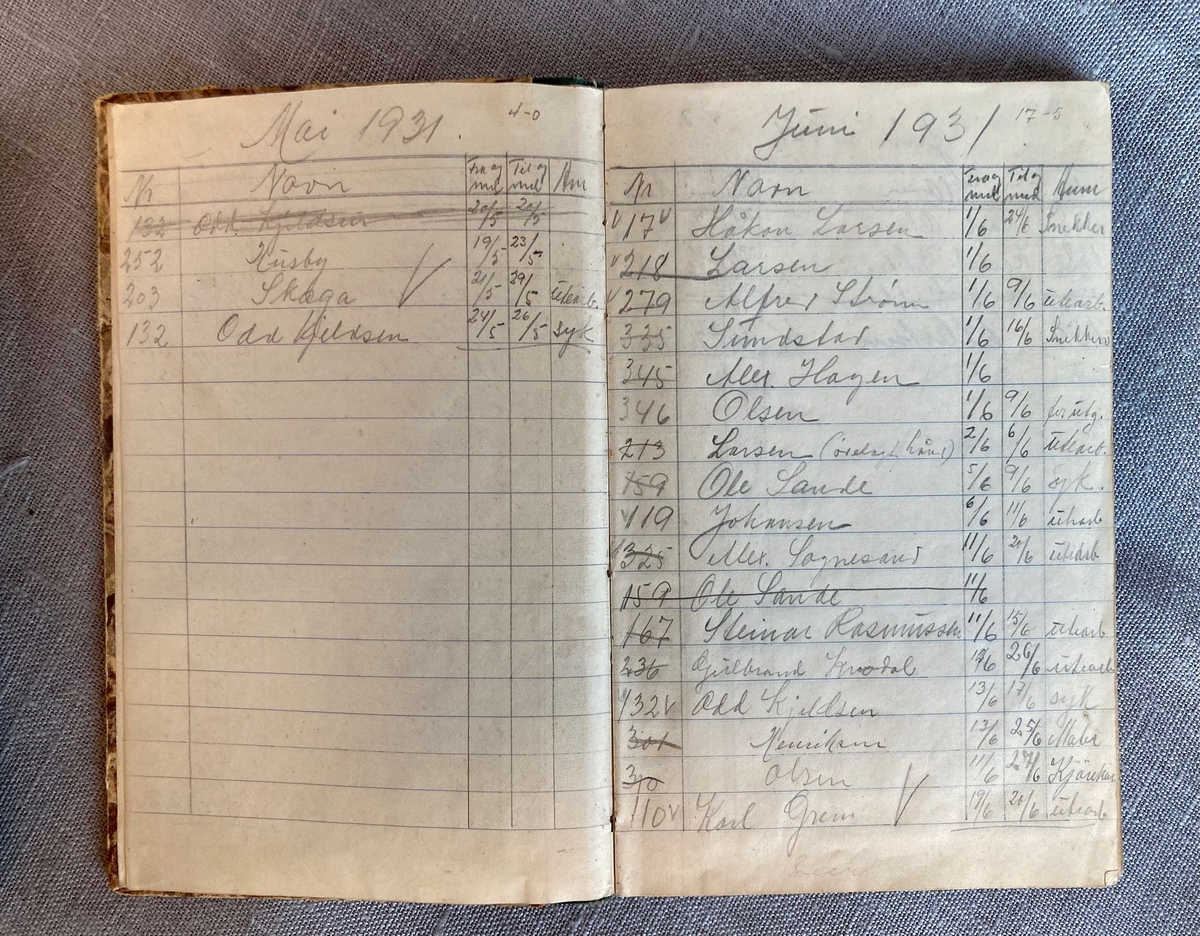 Mai 1931. 4-0
Nr Navn Fra og med Til og med Anm
132 Odd Kjeldsen 20/5 20/5
252 Husby 19/5 23/5
203 Skaga 21/5 29/5 utearb.
132 Odd Kjeldsen 24/5 26/5 syk
Juni 1931 17-5
Nr Navn Fra og med Til og med Anm
17 Håkon Larsen 1/6 24/6 Snekker
218 Larsen 1/6
279 Alfred Strøm 1/6 9/6 utearb.
335 Sundstad 1/6 16/6 Snekker
345 Alex. Hagen 1/6
346 Olsen 1/6 9/6
213 Larsen 2/6 6/6 utearb.
159 Ole Sande 5/6 9/6 syk.
119 Johansen 6/6 11/6 utearb
325 Alex. Sognesand 11/6 20/6 utearb
159 Ole Sande 11/6
167 Steinar Rasmussen 11/6 15/6 utearb
236 Gulbrand 26/6 utearb
132 Odd Kjeldsen 13/6 17/6 syk
301 Henriksen 13/6 25/6
Olsen 11/6
110 Karl 19/6 20/6 utearb